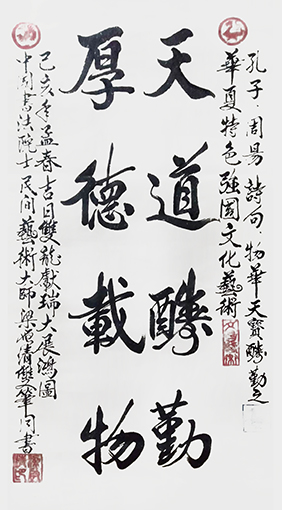 孔子·周易 詩句 物華天寶酬勤之
華夏特色強國文化藝術
天道酬勤
厚德載物
己亥年孟春吉日雙龍獻瑞大展鴻圖
中國書法院士民間藝術大師梁 清雙筆同書